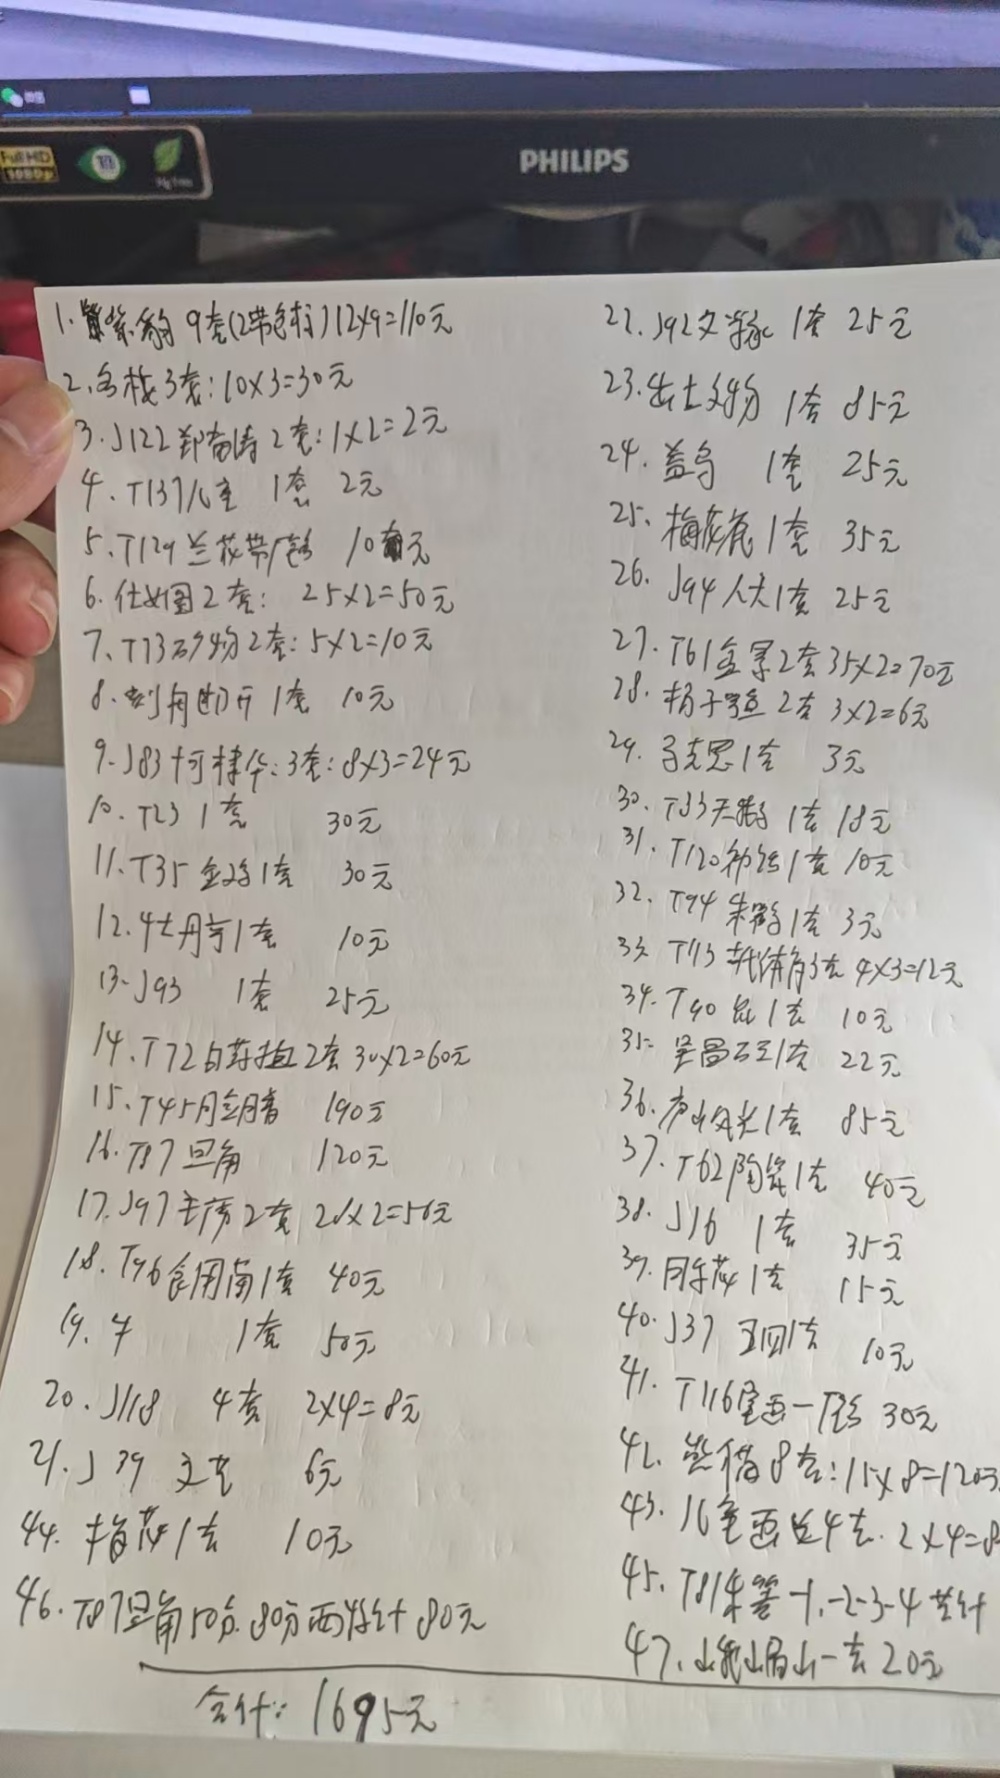 微信
Full HD
1080p
PHILIPS
1. 紫貂 9套(2带色标)12×9=110元
2. 3套:10×3=30元
3. J122 郑 2套:1×2=2元
4. T137儿童 1套 2元
5. T129兰花带 10元
6. 仕女图2套: 25×2=50元
7. T73矿物2套:5×2=10元
8. 刻舟 1套 10元
9. J83柯棣华:3套:8×3=24元
10. T23 1套 30元
11. T35 金 1套 30元
12. 牡丹亭1套 10元
13. J93 1套 25元
14. T72药植2套 30×2=60元
15. T45 190元
16. T87旦角 120元
17. J97主席2套 2×2=56元
18. T96食用菌1套 40元
19. 牛 1套 50元
20. J118 4套 2×4=8元
21. J39 文艺 6元
44. 梅花1套 10元
46. T87旦角50分.80分两枚计80元
合计:1695元
22. J92文学家 1套 25元
23. 出土文物 1套 85元
24. 益鸟 1套 25元
25. 梅花 1套 35元
26. J94人大1套 25元
27. T61 2套35×2=70元
28. 扬子鳄 2套 3×2=6元
29. 马克思1套 3元
30. T83天鹅 1套 18元
31. T120 1套 10元
32. T94 朱鹮1套 3元
33. T113 体育3套 4×3=12元
34. T90鼠1套 10元
35. 1套 22元
36. 风光1套 85元
37. T62陶瓷1套 40元
38. J16 1套 35元
39. 月季花1套 15元
40. J37 五四1套 10元
41. T116壁画一 30元
42. 熊猫8套:15×8=120元
43. 儿童画选4套.2×4=8
45. T81朱 -1.-2-3-4 共计
47. 峨嵋山一套20元